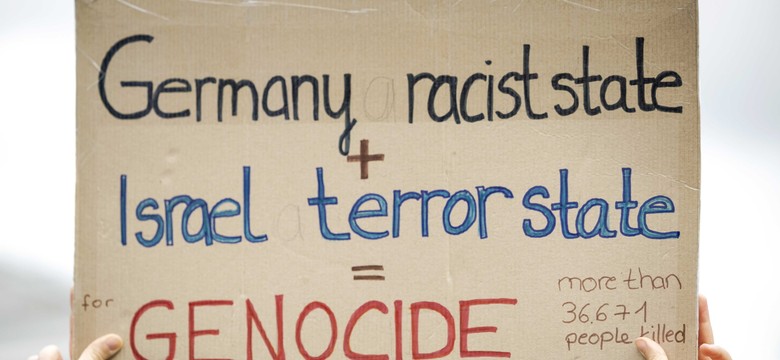 Germany a racist state
+
Israel a terror state
=
for GENOCIDE
more than
36.671
people killed